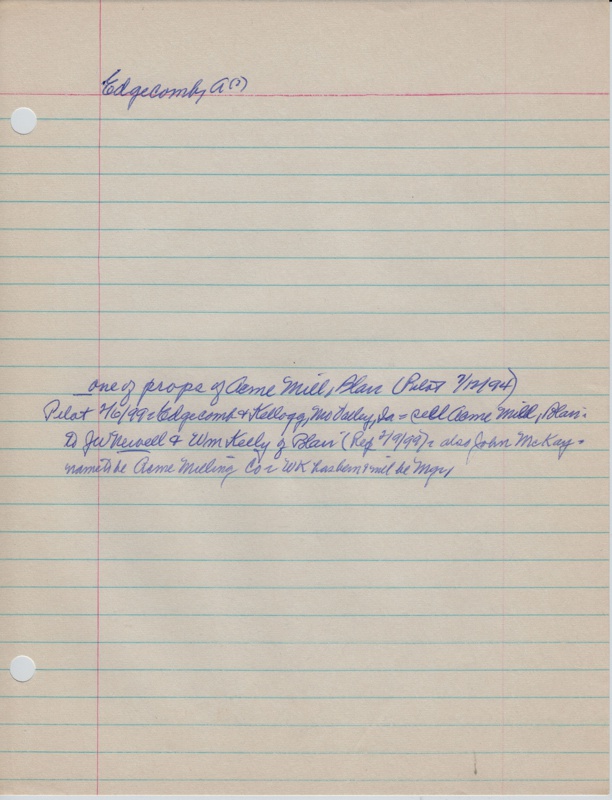 Edgecomb, A (?)
_one of props of Acme Mill, Blair (Pilot 7/12/94)
Pilot 2/6/99 = Edgecomb & Kellogg, Mo Valley, Ia = sell Acme Mill, Blair =
to J W Newell & Wm Kelly of Blair (Rep 2/9/99) = also John McKay =
name to be Acme Milling Co = WK has been & will be Mgr,